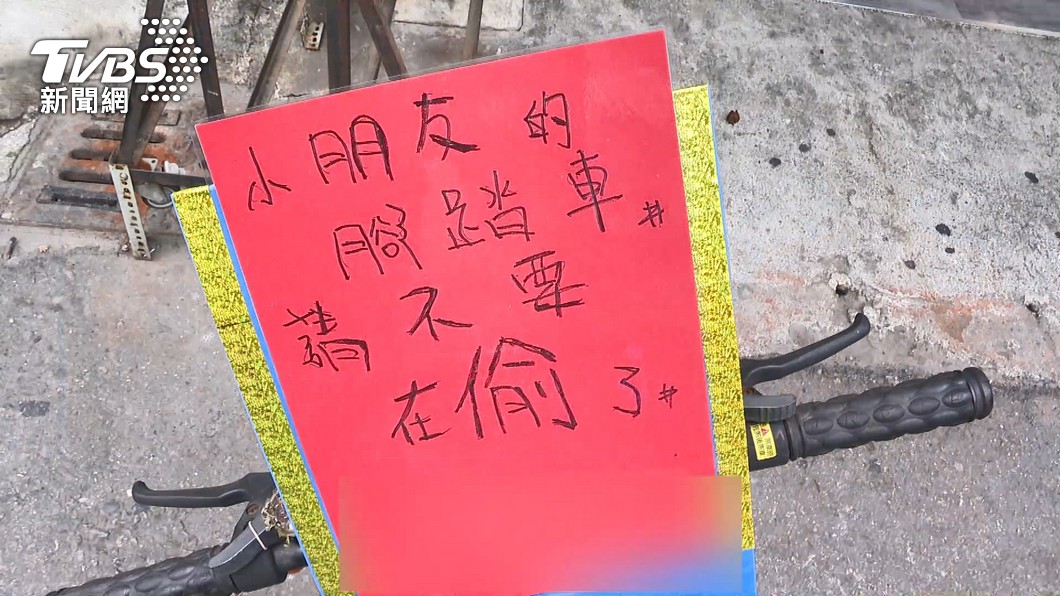 TVBS
新聞網
小朋友的
腳踏車#
請不要
在偷了#